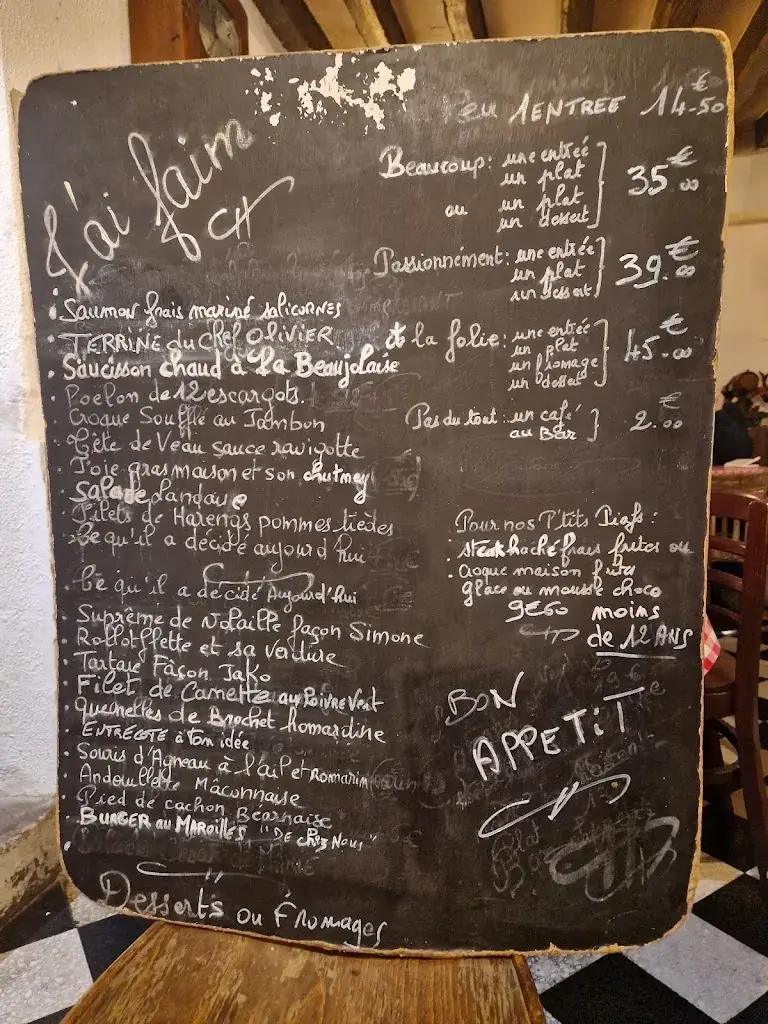 J'ai faim
Saumon frais mariné salicornes
TERRINE du Chef OLIVIER
Saucisson chaud à la Beaujolaise
Poelon de 12 escargots
Croque Soufflé au Jambon
Tête de Veau sauce ravigotte
Foie gras maison et son chutney
Salade Landaise
Filets de Harengs pommes tièdes
Ce qu'il a décidé aujourd'hui
Ce qu'il a décidé Aujourd'hui
Suprême de volaille façon Simone
Rollotflette et sa verdure
Tartare Façon Jako
Filet de Canette au Poivre Vert
Quenelles de Brochet homardine
ENTRECOTE à ton idée
Souris d'Agneau à l'ail et Romarin
Andouillette Mâconnaise
Pied de cochon Béarnaise
BURGER au MAROILLES "DE Chez Nous"
Desserts ou Fromages
eu 1 ENTREE 14.50 €
Beaucoup: une entrée
un plat
ou un plat
un dessert
35.00 €
Passionnément: une entrée
un plat
un dessert
39.00 €
A la folie: une entrée
un plat
un fromage
un dessert
45.00 €
Pas du tout: un café
au Bar
2.00 €
Pour nos P'tits Piafs:
steak haché frais frites ou
croque maison frites
glace ou mousse choco
9€50 moins
de 12 ANS
BON
APPETIT